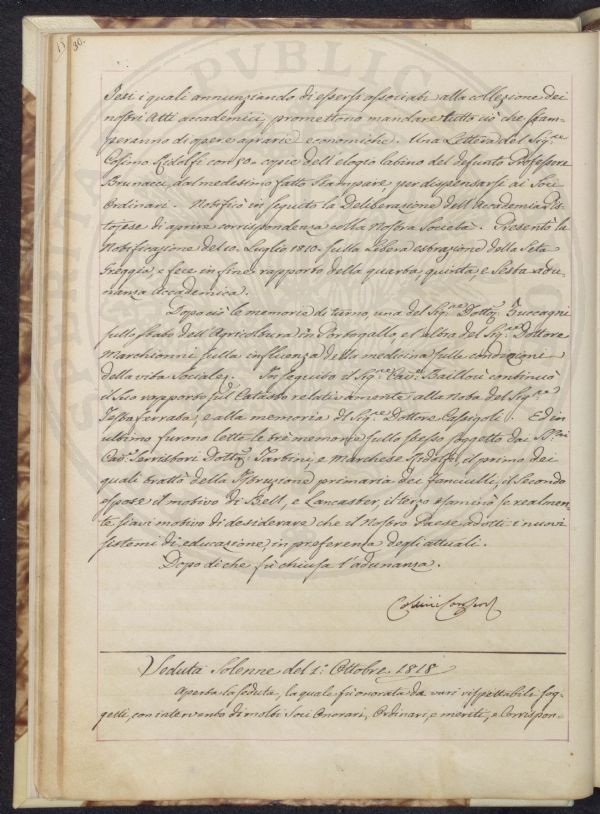 13/30.
Tesi i quali annunziando di essersi associati alla collezione dei
nostri Atti accademici, promettono mandare tutto ciò che stam-
peranno di opere agrarie economiche. Una Lettera del Sig.re
Cosimo Ridolfi con 50. copie dell'elogio latino del defunto Professore
Brunacci, dal medesimo fatto stampare, per dispensarsi ai Soci
Ordinari. Notificò in seguito la Deliberazione dell'Accademia Pis-
tojese di aprire corrispondenza colla Nostra Società. Presentò la
Notificazione del 10. Luglio 1818. sulla libera estrazione della Seta
greggia, e fece in fine rapporto della quarta, quinta, e Sesta adu-
nanza Accademica.
Dopo ciò le memorie di turno una del Sig.re Dott. Zuccagni
sullo stato dell'Agricoltura in Portogallo, e l'altra del Sig.re Dottore
Marchionni sulla influenza della medicina sulle condizioni
della vita Sociale. In seguito il Sig.re Cav.re Baillou continuò
il Suo rapporto sul Catasto relativamente alla Nota del Sig.re
Testaferrata, e alla memoria del Sig.re Dottore Cassigoli. Ed in
ultimo furono lette le tre memorie sullo stesso soggetto dai SS.ri
Cav.re Serristori Dott. Tartini, e Marchese Ridolfi, il primo dei
quali trattò della Istruzione primaria dei fanciulli, il Secondo
espose il motivo di Bell, e Lancaster, il terzo esaminò se realmen-
te siavi motivo di desiderare che il Nostro Paese adotti i nuovi
sistemi di educazione, in preferenza degli attuali.
Dopo di che fu chiusa l'adunanza.
Seduta Solenne del 1.° Ottobre 1818
Aperta la seduta, la quale fu onorata da vari rispettabili Sog-
getti, con intervento di molti Soci Onorari, Ordinari, emeriti, e Corrispon-